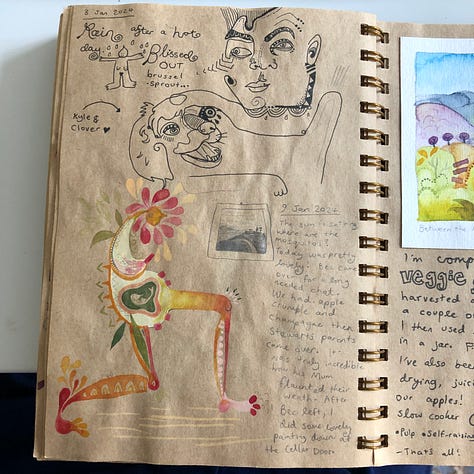 8 Jan 2024
Rain after a hot
day.
Blissed
OUT
brussel
-sprouts-
Kyle &
Clover ♥
9 Jan 2024
The sun is setting
where are the
mosquitos?
Today was pretty
lovely. Bec came
over for a long
needed chat.
We had apple
crumble and
champagne then
Stewarts parents
came over. It
was truly incredible
how his Mum
flaunted their
wealth. After
Bec left, I
did some lovely
painting down at
the Cellar Door.
Between the
I'm comp
veggie
harvested
a couple o
I then used
in a jar. F
I've also bee
drying, juic
our apples!
slow cooker
•Pulp •Self-raisin
-That's all!